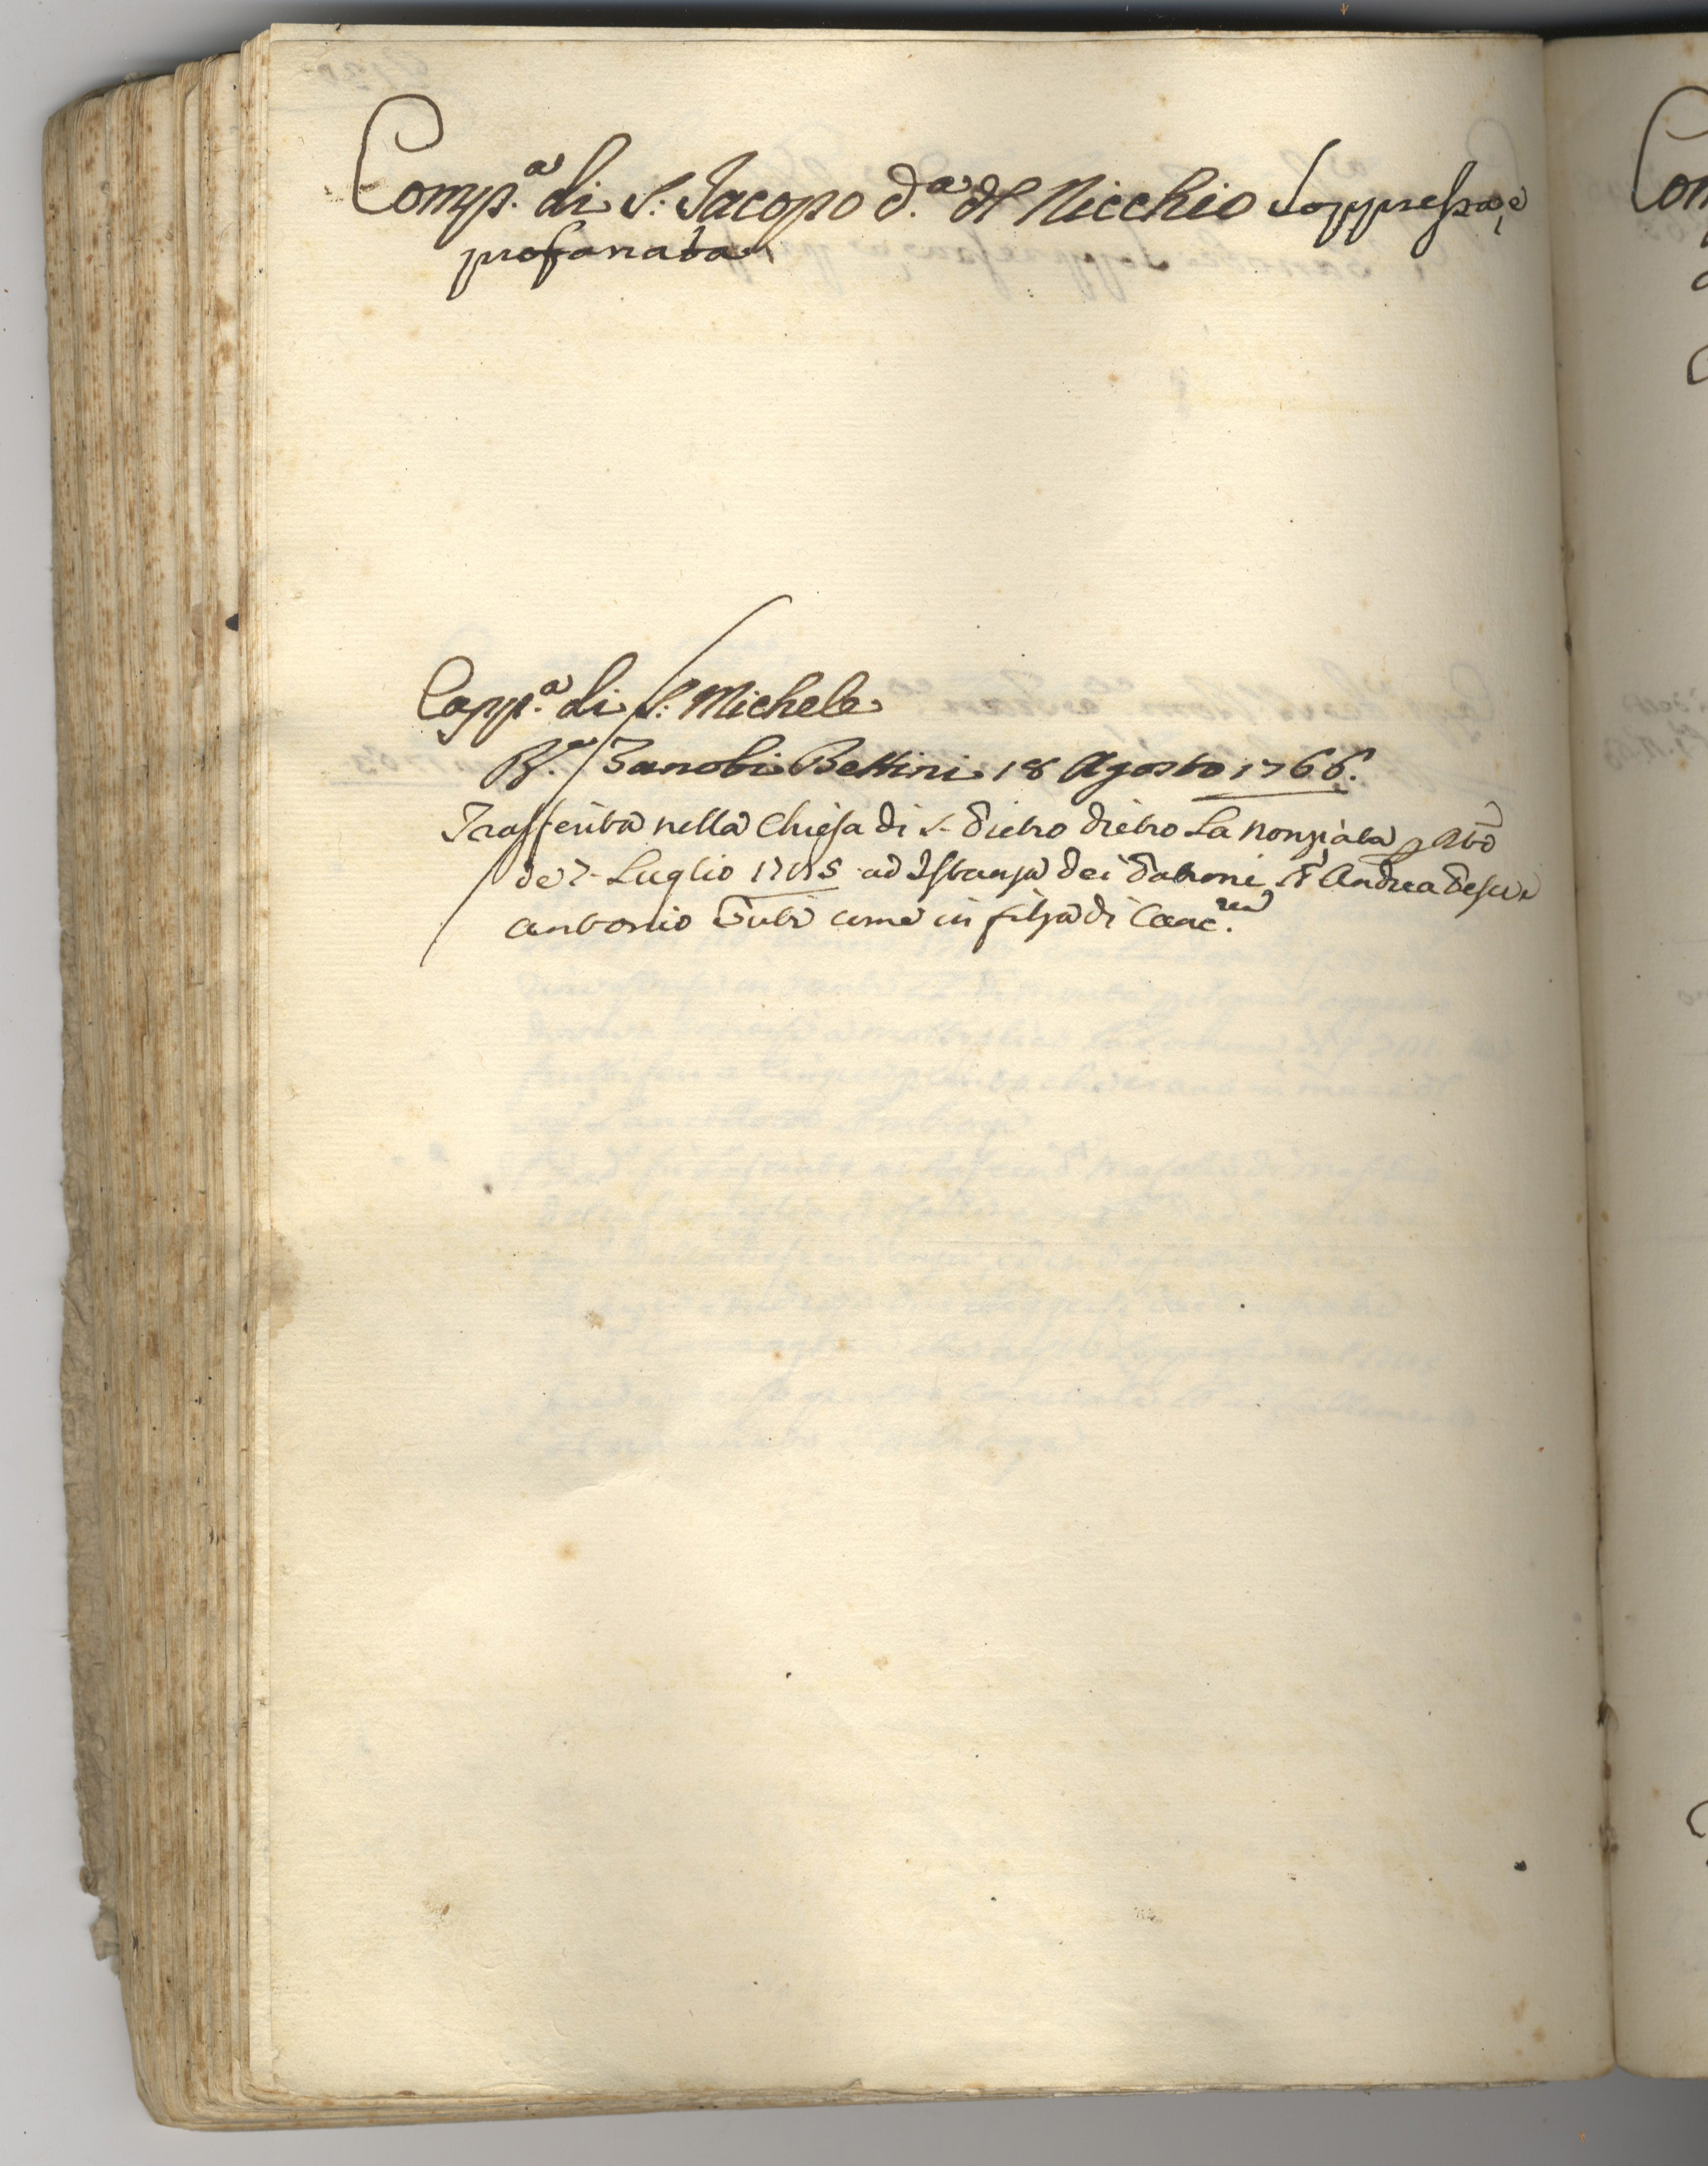 Comp.ª di S. Jacopo d.ª del Nicchio Soppressa, e
profanata
Capp.ª di S. Michele
R.ª Zanobi Bettini 18 Agosto 1766.
Trasferita nella Chiesa di S. Pietro dietro La Nonziata p
de 7 Luglio ad Istanza dei Padroni Andrea
Antonio come in filza di Canc.rea